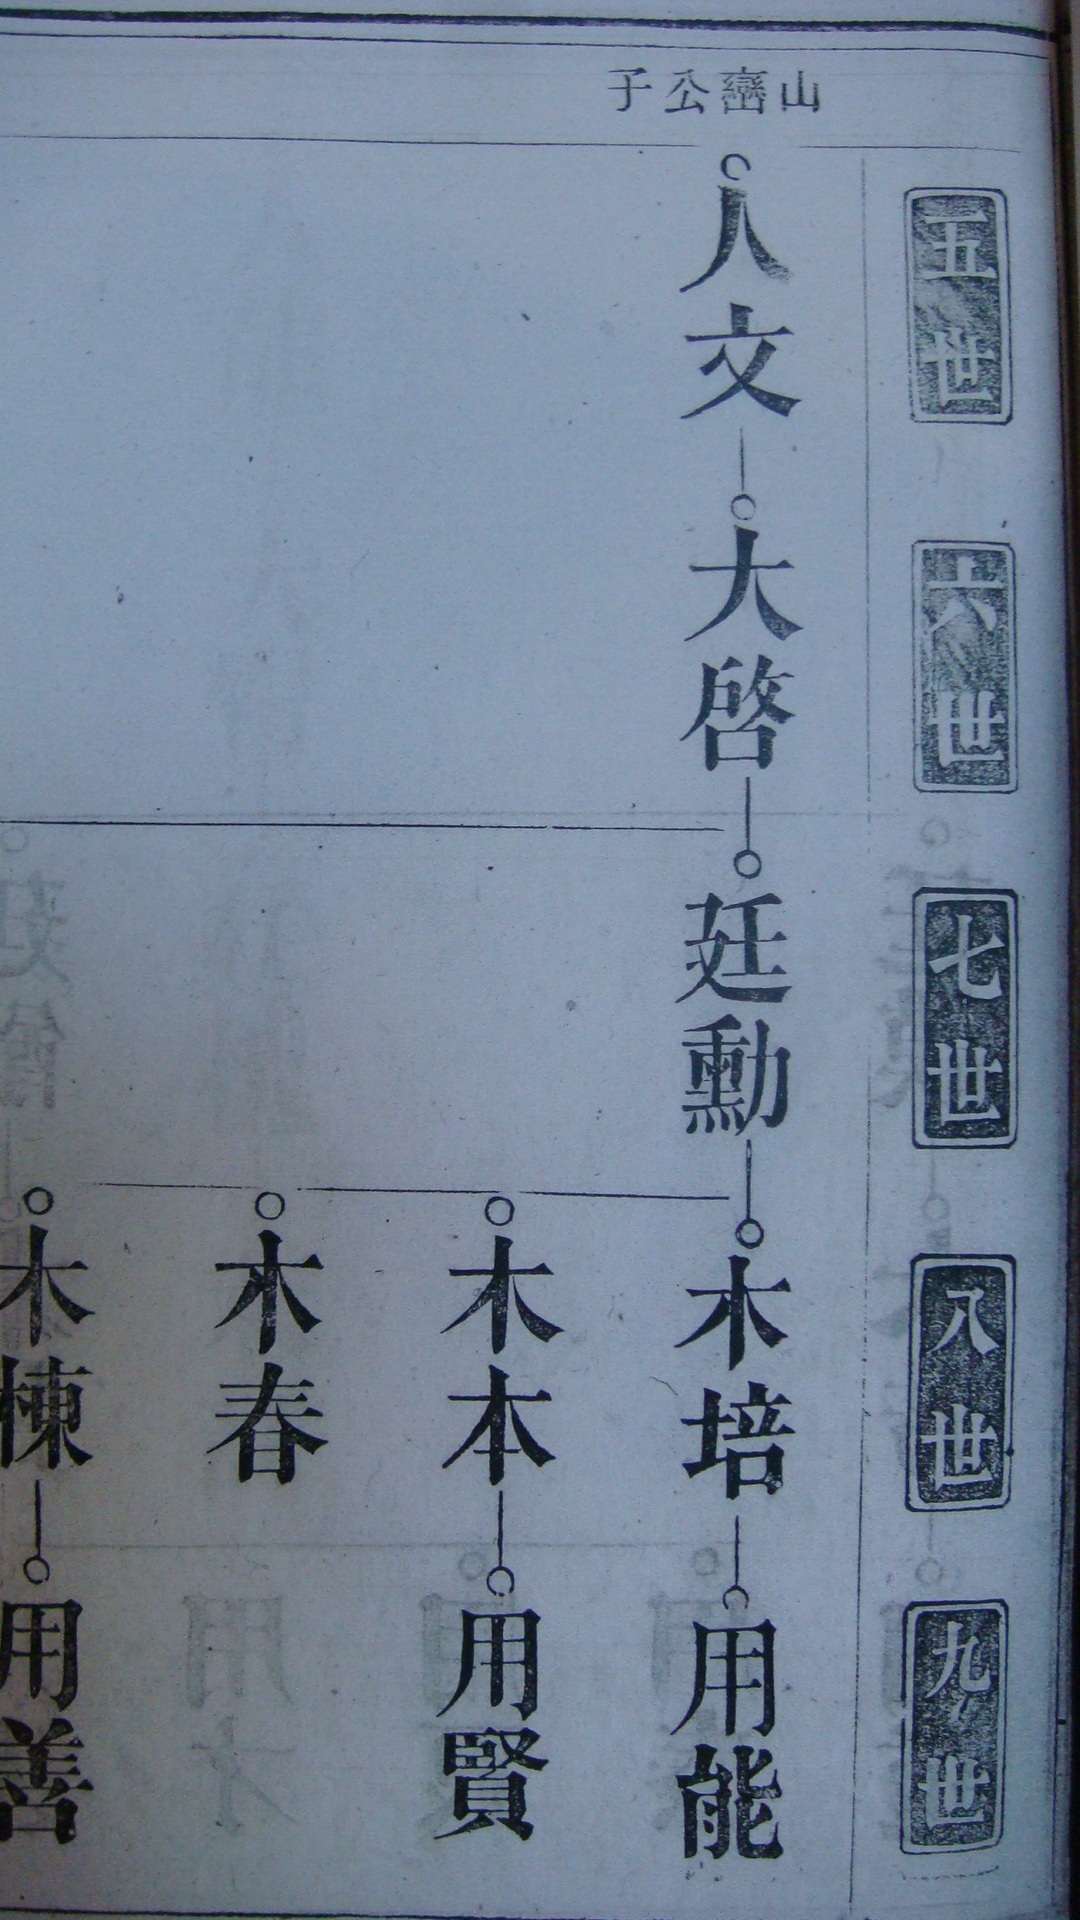 山巒公子
五世
六世
七世
八世
九世
人文
大啓
廷勳
木培
用能
木本
用賢
木春
木棟
用善